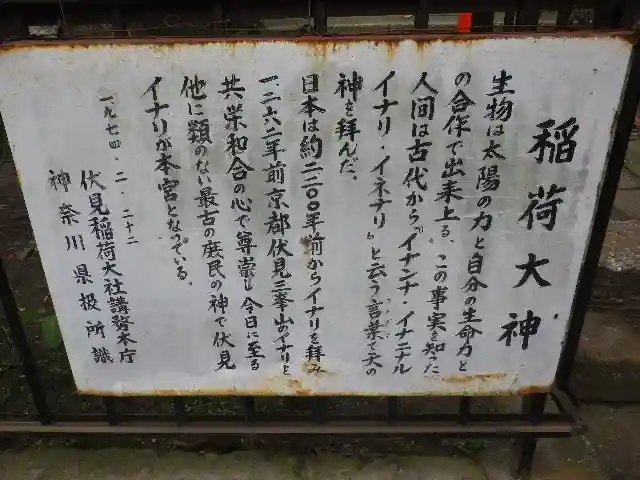 稲荷大神
生物は太陽の力と自分の生命力と
の合作で出来上る、この事実を知った
人間は古代から「イナンナ・イナニナル
イナリ・イネナリ」と云う言葉で天の
神を拝んだ。
日本は約二二〇〇年前からイナリを拝み
一二六二年前京都伏見三峯山のイナリと
共栄和合の心で尊崇し今日に至る
他に類のない最古の庶民の神で伏見
イナリが本宮となっている。
一九七四・二・二十二
伏見稲荷大社講務本庁
神奈川県扱所識